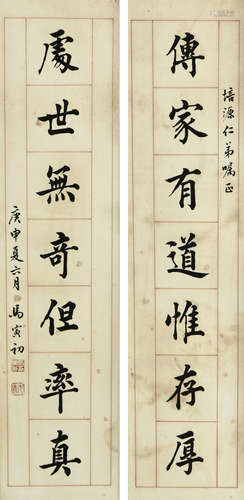 傳家有道惟存厚
培源仁弟嘱正
處世無奇但率真
庚申夏六月馬寅初